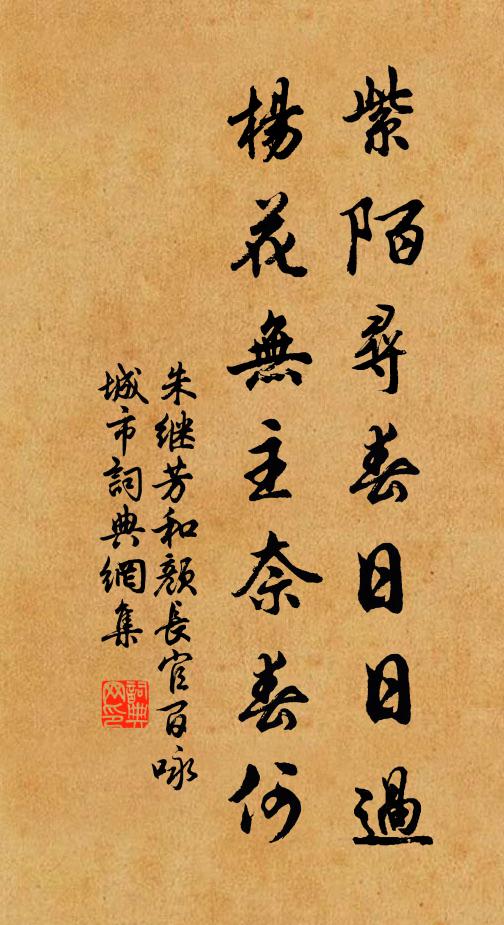 紫陌尋春日日過
楊花無主奈春何
朱継芳和顏長官百咏
城市詞典網集
詞典网印